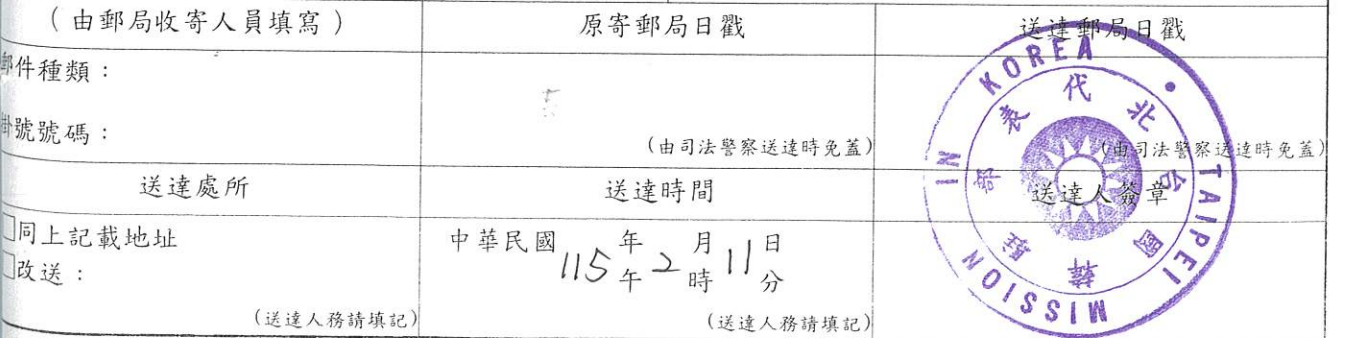 (由郵局收寄人員填寫)
原寄郵局日戳
送達郵局日戳
郵件種類：
掛號號碼：
(由司法警察送達時免蓋)
(由司法警察送達時免蓋)
送達處所
送達時間
送達人簽章
□同上記載地址
□改送：
(送達人務請填記)
中華民國115年2月11日
午 時 分
(送達人務請填記)
TAIPEI MISSION IN KOREA
駐韓國台北代表部